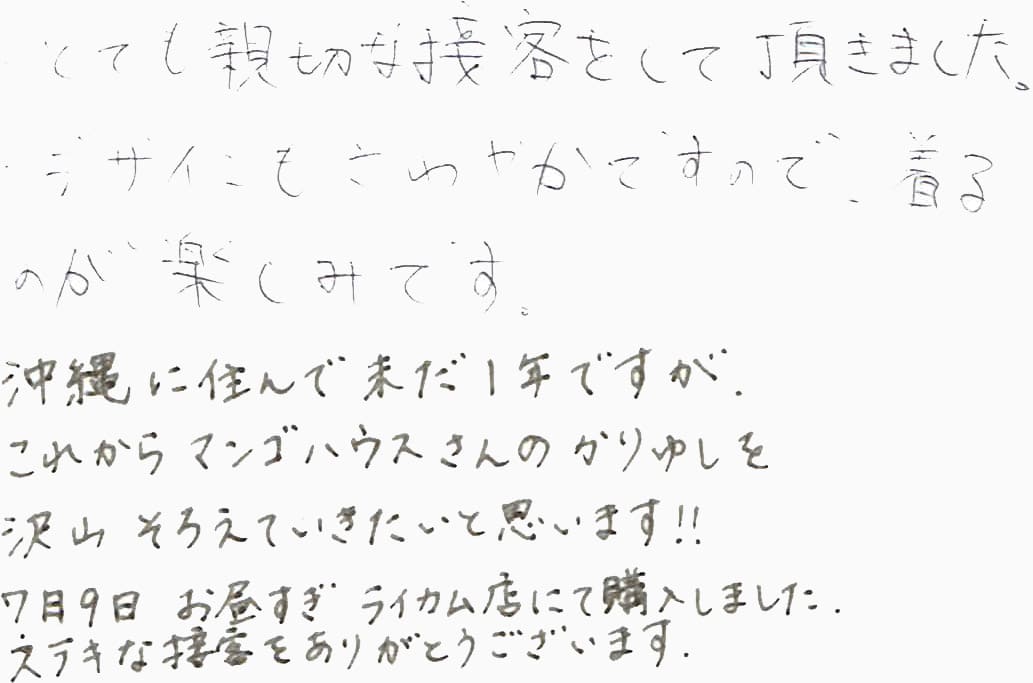 とても親切な接客をして頂きました。
デザインもさわやかですので、着る
のが楽しみです。
沖縄に住んで未だ1年ですが、
これからマンゴハウスさんのかりゆしを
沢山そろえていきたいと思います!!
7月9日 お昼すぎ ライカム店にて購入しました.
ステキな接客をありがとうございます.